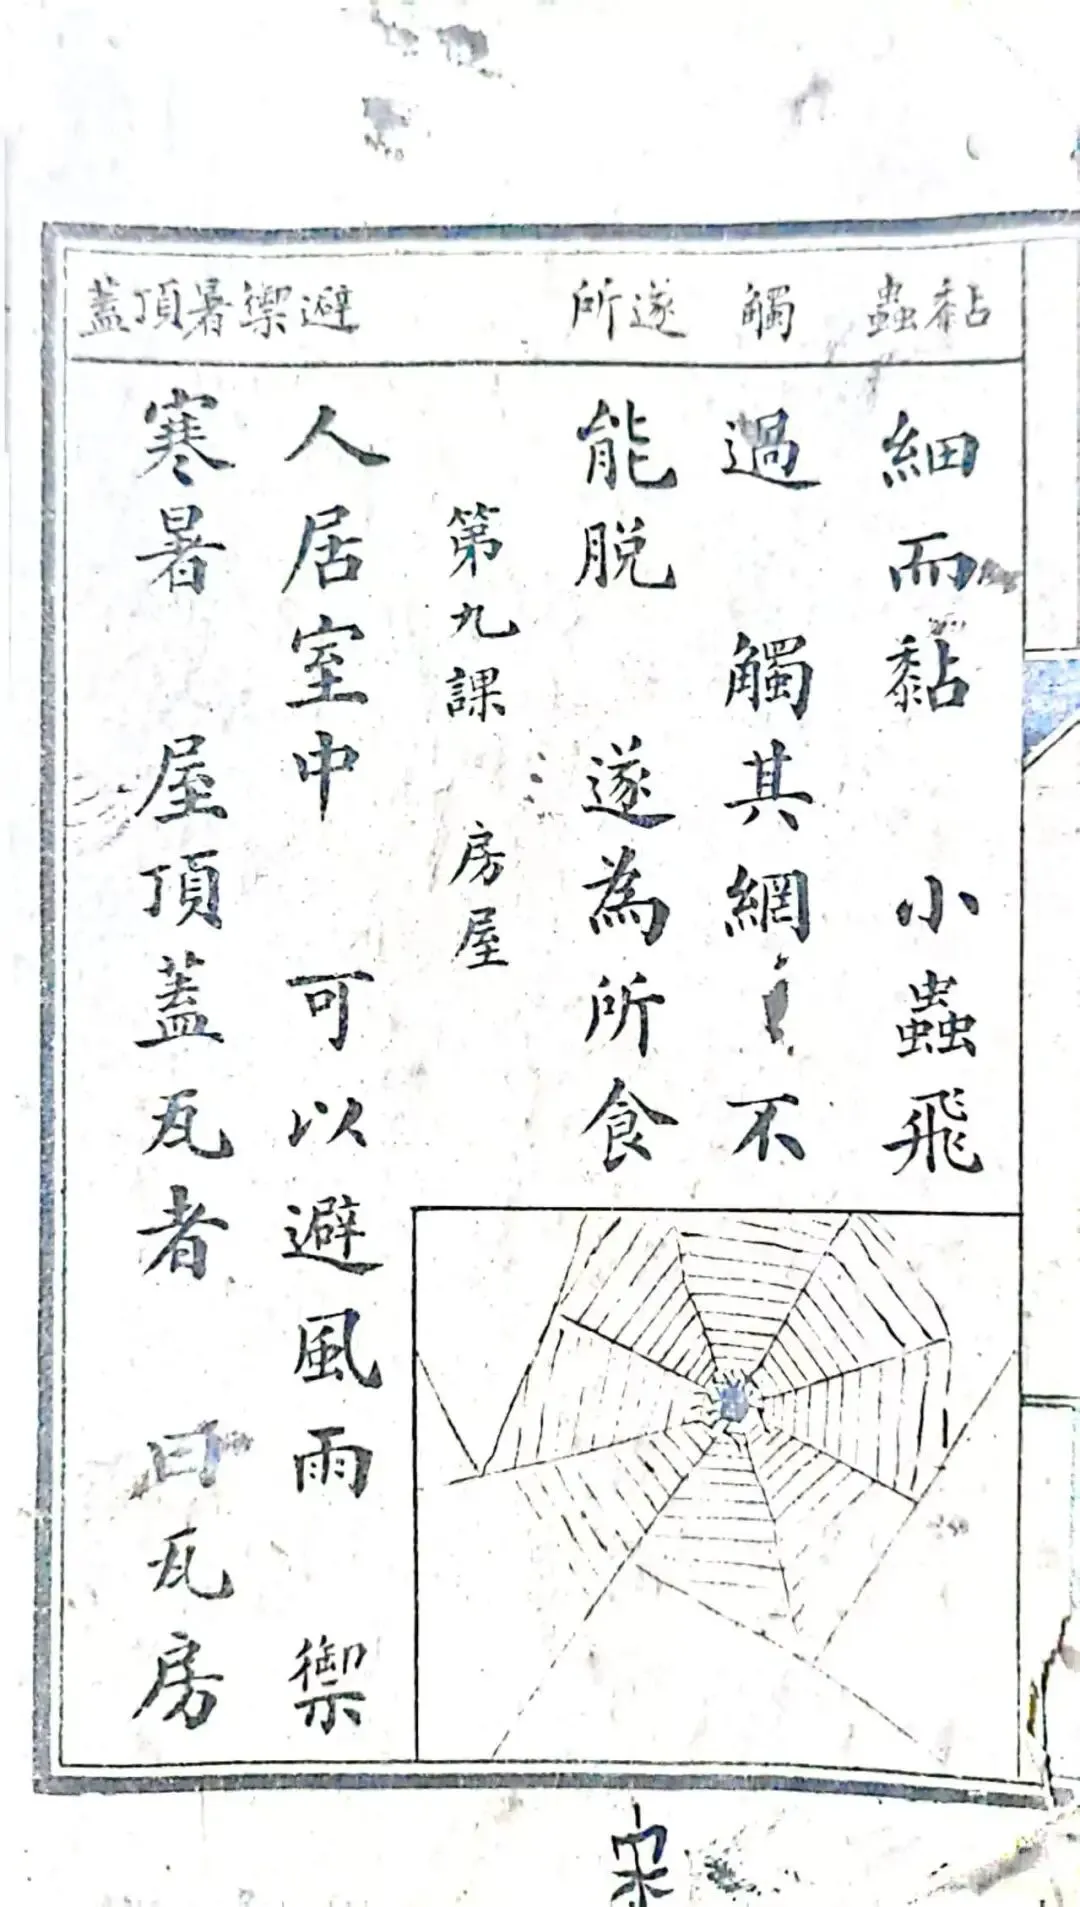 黏蟲
觸
遂所
避禦暑頂蓋
細而黏　小蟲飛
過　觸其網　不
能脫　遂為所食
第九課　房屋
人居室中　可以避風雨　禦
寒暑　屋頂蓋瓦者　曰瓦房
宋